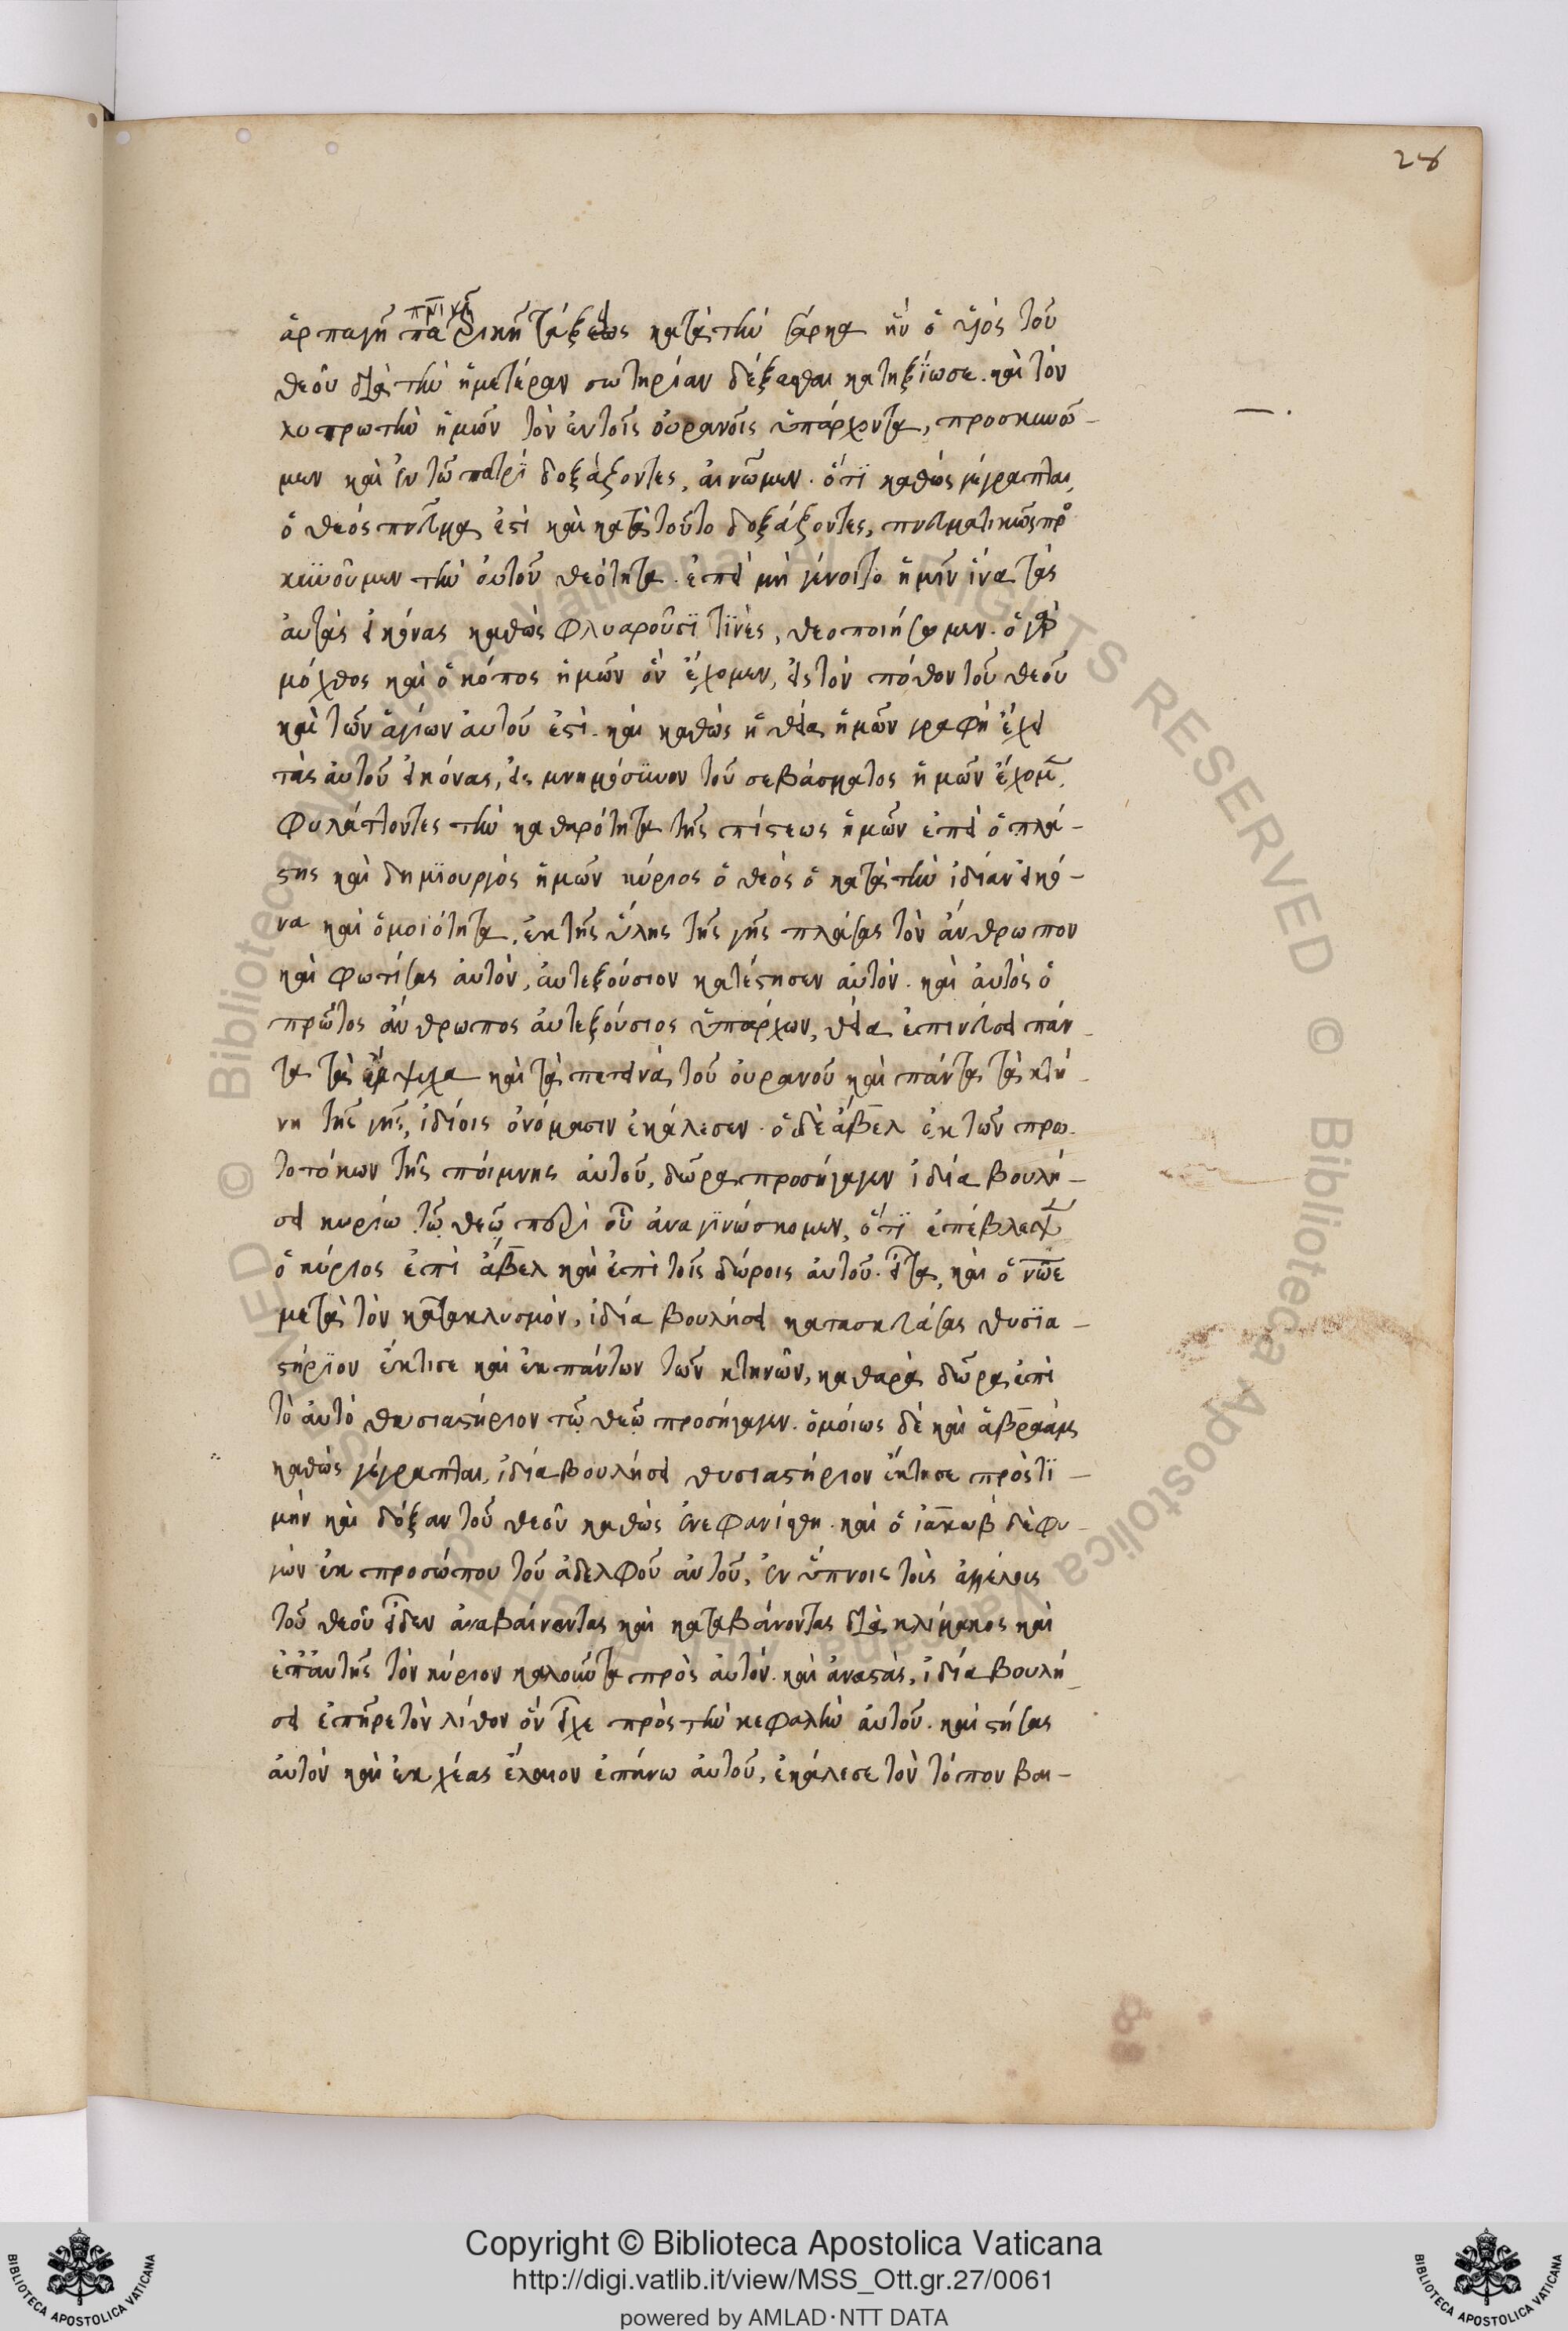 28
πρικῆ
ἁρπαγῆ πα ρικῆ τάξεως κατὰ τὴν σάρκα ἣν ὁ υἱὸς τοῦ
θεοῦ διὰ τὴν ἡμετέραν σωτηρίαν δέξασθαι κατηξίωσε. καὶ τὸν
λυτρωτὴν ἡμῶν τὸν ἐν τοῖς οὐρανοῖς ὑπάρχοντα, προσκυνοῦ-
μεν καὶ ἐν τῶ πατρὶ δοξάζοντες, αἰνῶμεν. ὅτι καθὼς γέγραπται,
ὁ θεὸς πνεῦμα ἐστὶ καὶ κατὰ τοῦτο δοξάζοντες, πνευματικῶς προ
κυνοῦμεν τὴν αὐτοῦ θεότητα. ἐπεὶ μὴ γένοιτο ἡμῖν ἵνα τὰς
αὐτὰς εἰκόνας καθὼς φλυαροῦσι τινὲς, θεοποιήσωμεν. ὁ γὰρ
μόχθος καὶ ὁ κόπος ἡμῶν ὃν ἔχομεν, εἰς τὸν πόθον τοῦ θεοῦ
καὶ τῶν ἁγίων αὐτοῦ ἐστὶ. καὶ καθὼς ἡ θεία ἡμῶν γραφὴ ἔχει
τὰς αὐτοῦ εἰκόνας, εἰς μνημόσυνον τοῦ σεβάσματος ἡμῶν ἔχομεν,
φυλάττοντες τὴν καθαρότητα τῆς πίστεως ἡμῶν ἐπεὶ ὁ πλά-
στης καὶ δημιουργὸς ἡμῶν κύριος ὁ θεὸς ὁ κατὰ τὴν ἰδίαν εἰκό-
να καὶ ὁμοιότητα, ἐκ τῆς ὕλης τῆς γῆς πλάσας τὸν ἄνθρωπον
καὶ φωτίσας αὐτὸν, αὐτεξούσιον κατέστησεν αὐτὸν. καὶ αὐτὸς ὁ
πρῶτος ἄνθρωπος αὐτεξούσιος ὑπάρχων, θεία ἐπινεύσει πάν-
τα τὰ ἔμψυχα καὶ τὰ πετεινὰ τοῦ οὐρανοῦ καὶ πάντα τὰ κτή-
νη τῆς γῆς, ἰδίοις ὀνόμασιν ἐκάλεσεν. ὁ δὲ ἄβελ ἐκ τῶν πρω-
τοτόκων τῆς ποίμνης αὐτοῦ, δῶρα προσήγαγεν ἰδία βουλή-
σει κυρίω τῶ θεῶ περὶ οὗ ἀναγινώσκομεν, ὅτι ἐπέβλεψεν
ὁ κύριος ἐπὶ ἄβελ καὶ ἐπὶ τοῖς δώροις αὐτοῦ. εἶτα, καὶ ὁ νῶε
μετὰ τὸν κατακλυσμὸν, ἰδία βουλήσει κατασκευάσας θυσια-
στήριον ἔκτισε καὶ ἐκ πάντων τῶν κτηνῶν, καθαρὰ δῶρα ἐπὶ
τὸ αὐτὸ θυσιαστήριον τῶ θεῶ προσήγαγεν. ὁμοίως δὲ καὶ ἀβραὰμ
καθὼς γέγραπται, ἰδία βουλήσει θυσιαστήριον ἔκτησε πρὸς τι-
μὴν καὶ δόξαν τοῦ θεοῦ καθὼς ἐνεφανίσθη. καὶ ὁ ἰακὼβ δὲ φυ-
γὼν ἐκ προσώπου τοῦ ἀδελφοῦ αὐτοῦ, ἐν ὕπνοις τοὺς ἀγγέλους
τοῦ θεοῦ εἶδεν ἀναβαίνοντας καὶ καταβαίνοντας διὰ κλίμακος καὶ
ἐπ' αὐτῆς τὸν κύριον καλοῦντα πρὸς αὐτὸν. καὶ ἀναστὰς, ἰδία βουλή-
σει ἐπῆρε τὸν λίθον ὃν εἶχε πρὸς τὴν κεφαλὴν αὐτοῦ. καὶ στήσας
αὐτὸν καὶ ἐκχέας ἔλαιον ἐπάνω αὐτοῦ, ἐκάλεσε τὸν τόπον βαι-
Copyright © Biblioteca Apostolica Vaticana
http://digi.vatlib.it/view/MSS_Ott.gr.27/0061
powered by AMLAD·NTT DATA